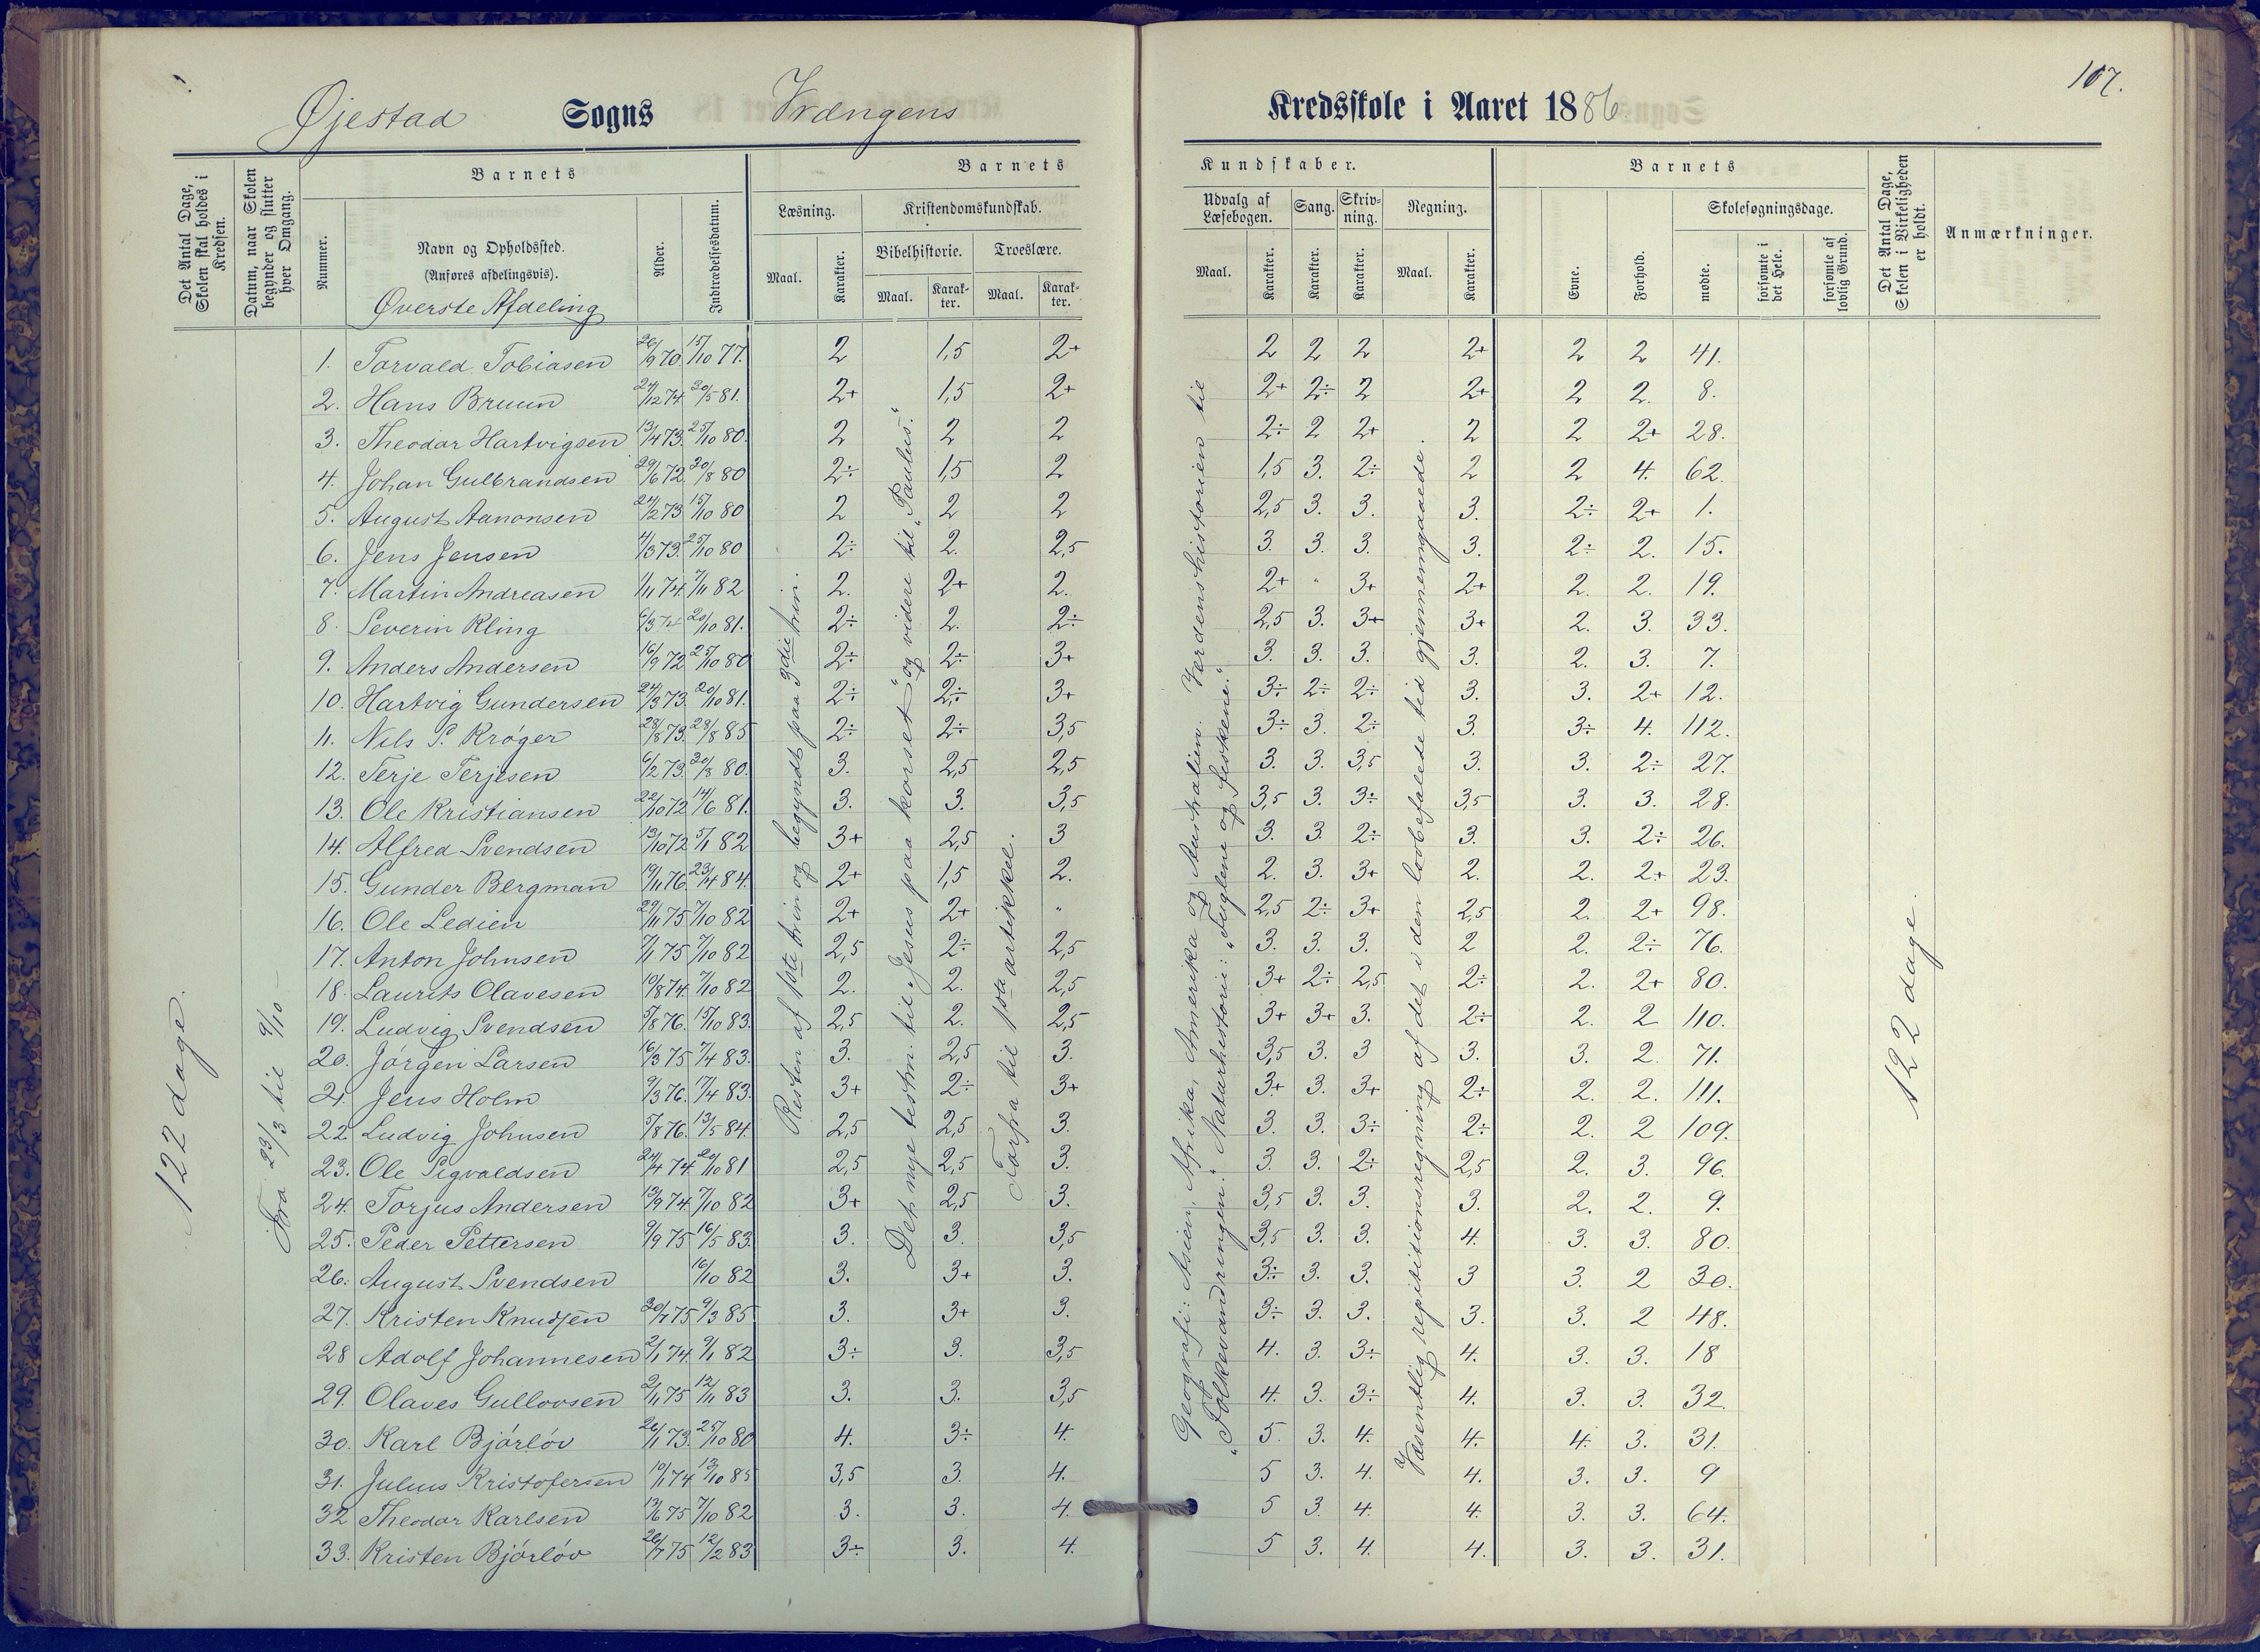 107.
Øjestad Sogns Vrængens Kredsskole i Aaret 1886
Det Antal Dage, Skolen skal holdes i Kredsen.
Datum, naar Skolen begynder og slutter hver Omgang.
Barnets
Nummer.
Navn og Opholdssted.
(Anføres afdelingsvis).
Øverste Afdeling
Alder.
Indtrædelsesdatum.
Barnets Kundskaber.
Læsning.
Maal. Karakter.
Kristendomskundskab.
Bibelhistorie. Troeslære.
Maal. Karakter. Maal. Karakter.
Udvalg af Læsebogen.
Maal. Karakter.
Sang. Karakter.
Skrivning. Karakter.
Regning.
Maal. Karakter.
Barnets
Evne. Forhold.
Skolesøgningsdage.
mødte. forsømte i det Hele. forsømte af lovlig Grund.
Det Antal Dage, Skolen i Virkeligheden er holdt.
Anmærkninger.
122 dage.
Fra 23/3 til 9/10 –
Resten af 1ste trin og begyndt paa 3die trin.
Det nye testm. til „Jesus paa korset" og videre til „Paulus."
Forfra til 1ste artikkel.
Geografi: Asien, Afrika, Amerika og Australien. Verdenshistorien til
„Folkevandringen". Naturhistorie: „Fuglene og fiskene."
Væsentlig repititionsregning af det i den lovbefalede tid gjennemgaaede.
122 dage.
1. Torvald Tobiasen 26/9 70. 15/10 77. 2 1,5 2+ 2 2 2 2+ 2 2 41.
2. Hans Bruun 24/12 74. 20/5 81. 2+ 1,5 2+ 2+ 2÷ 2 2+ 2 2. 8.
3. Theodor Hartvigsen 13/4 73. 25/10 80. 2 2 2 2÷ 2 2+ 2 2 2+ 28.
4. Johan Gulbrandsen 29/6 72. 20/8 80 2÷ 1,5 2 1,5 3. 2÷ 2 2 4. 62.
5. August Aanonsen 24/2 73 15/10 80 2 2 2 2,5 3. 3. 3. 2÷ 2+ 1.
6. Jens Jensen 4/3 73. 25/10 80 2÷ 2. 2,5 3. 3. 3. 3. 2÷ 2. 15.
7. Martin Andreasen 1/11 74. 7/11 82 2. 2+ 2. 2+ " 3+ 2+ 2. 2. 19.
8. Severin Kling 6/3 74 20/10 81. 2÷ 2. 2÷ 2,5 3. 3+ 3+ 2. 3. 33.
9. Anders Andersen 16/9 72 25/10 80 2÷ 2÷ 3+ 3. 3. 3. 3. 2. 3. 7.
10. Hartvig Gundersen 24/3 73. 20/10 81. 2÷ 2÷ 3+ 3÷ 2÷ 2÷ 3. 3. 2+ 12.
11. Nils S. Krøger 28/8 73. 28/8 85 2÷ 2÷ 3,5 3÷ 3. 2÷ 3. 3÷ 4. 112.
12. Terje Terjesen 6/2 73. 20/8 80. 3. 2,5 2,5 3. 3. 3,5 3. 3. 2÷ 27.
13. Ole Kristiansen 22/10 72 14/6 81. 3. 3. 3,5 3,5 3. 3÷ 3,5 3. 3. 28.
14. Alfred Svendsen 13/10 72 5/1 82 3+ 2,5 3 3. 3 2÷ 3. 3. 2÷ 26.
15. Gunder Bergman 19/11 76. 23/4 84. 2+ 1,5 2. 2. 3. 3+ 2. 2. 2+ 23.
16. Ole Ledien 29/11 75 7/10 82 2+ 2+ " 2,5 2÷ 3+ 2,5 2. 2+ 98.
17. Anton Johnsen 7/1 75 7/10 82 2,5 2÷ 2,5 3. 3. 3. 2 2. 2÷ 76.
18. Laurits Olavesen 10/8 74. 7/10 82 2. 2. 2,5 3+ 2÷ 2,5 2÷ 2. 2+ 80.
19. Ludvig Svendsen 5/8 76. 15/10 83. 2,5 2. 2,5 3+ 3+ 3. 2÷ 2. 2 110.
20. Jørgen Larsen 16/3 75 7/4 83. 3. 2,5 3. 3,5 3. 3 3. 3. 2. 71.
21. Jens Holm 9/3 76. 17/4 83. 3+ 2÷ 3+ 3+ 3. 3+ 2÷ 2. 2. 111.
22. Ludvig Johnsen 5/8 76. 13/5 84. 2,5 2,5 3. 3. 3. 3÷ 2÷ 2. 2 109.
23. Ole Sigvaldsen 24/4 74. 20/10 81 2,5 2,5 3. 3. 3. 2÷ 2,5 2. 3. 96.
24. Torjus Andersen 13/9 74. 7/10 82 3+ 2,5 3. 3,5 3. 3. 3. 2. 2. 9.
25. Peder Pettersen 9/9 75 16/5 83. 3. 3. 3,5 3,5 3. 3. 4. 3. 3. 80.
26. August Svendsen 16/10 82 3. 3+ 3. 3÷ 3. 3. 3 3. 2 30.
27. Kristen Knudsen 30/7 75 9/3 85 3. 3+ 3. 3÷ 3. 3. 3. 3. 2 48.
28 Adolf Johannesen 2/1 74. 9/1 82 3÷ 3. 3,5 4. 3. 3÷ 4. 3. 3. 18
29. Olaves Gullovsen 2/11 75 12/11 83 3. 3. 3,5 4. 3. 3÷ 4. 3. 3. 32.
30. Karl Bjørløv 26/1 73. 25/10 80 4. 3÷ 4. 5. 3. 4. 4. 4. 3. 31.
31. Julius Kristofersen 10/1 74 13/10 85 3,5 3. 4. 5 3. 4. 4. 3. 3. 9
32 Theodor Karlsen 13/6 75 7/10 82 3. 3. 4. 5 3. 4. 4. 3. 3. 64.
33. Kristen Bjørløv 26/7 75 12/2 83 3÷ 3. 4. 5 3. 4. 4. 3. 3. 31.